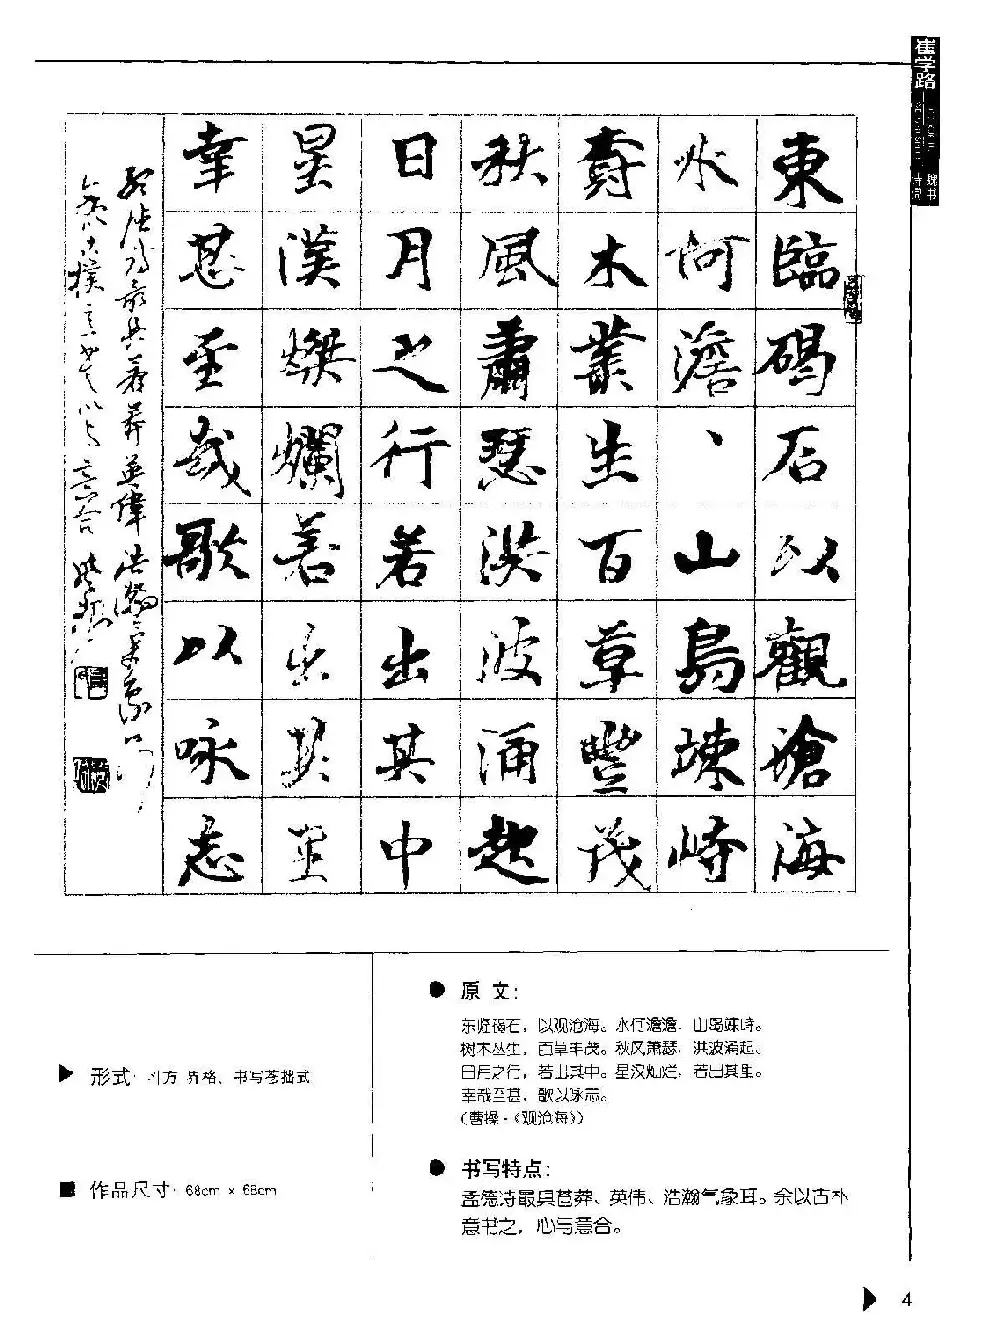 崔学路
魏书
诗词
東臨碣石以觀滄海
水何澹、山島竦峙
木叢生百草豐茂
秋風蕭瑟洪波涌起
日月之行若出其中
星漢燦爛若出其里
幸甚至哉歌以咏志
孟德詩最具蒼莽英偉浩瀚氣象耳
余以古樸意書之心与意合
形式：斗方 界格、书写苍拙式
作品尺寸：68cm × 68cm
原文：
东临碣石，以观沧海。水何澹澹，山岛竦峙。
树木丛生，百草丰茂。秋风萧瑟，洪波涌起。
日月之行，若出其中。星汉灿烂，若出其里。
幸哉至甚，歌以咏志。
（曹操·《观沧海》）
书写特点：
孟德诗最具苍莽、英伟、浩瀚气象耳。余以古朴
意书之，心与意合。
4